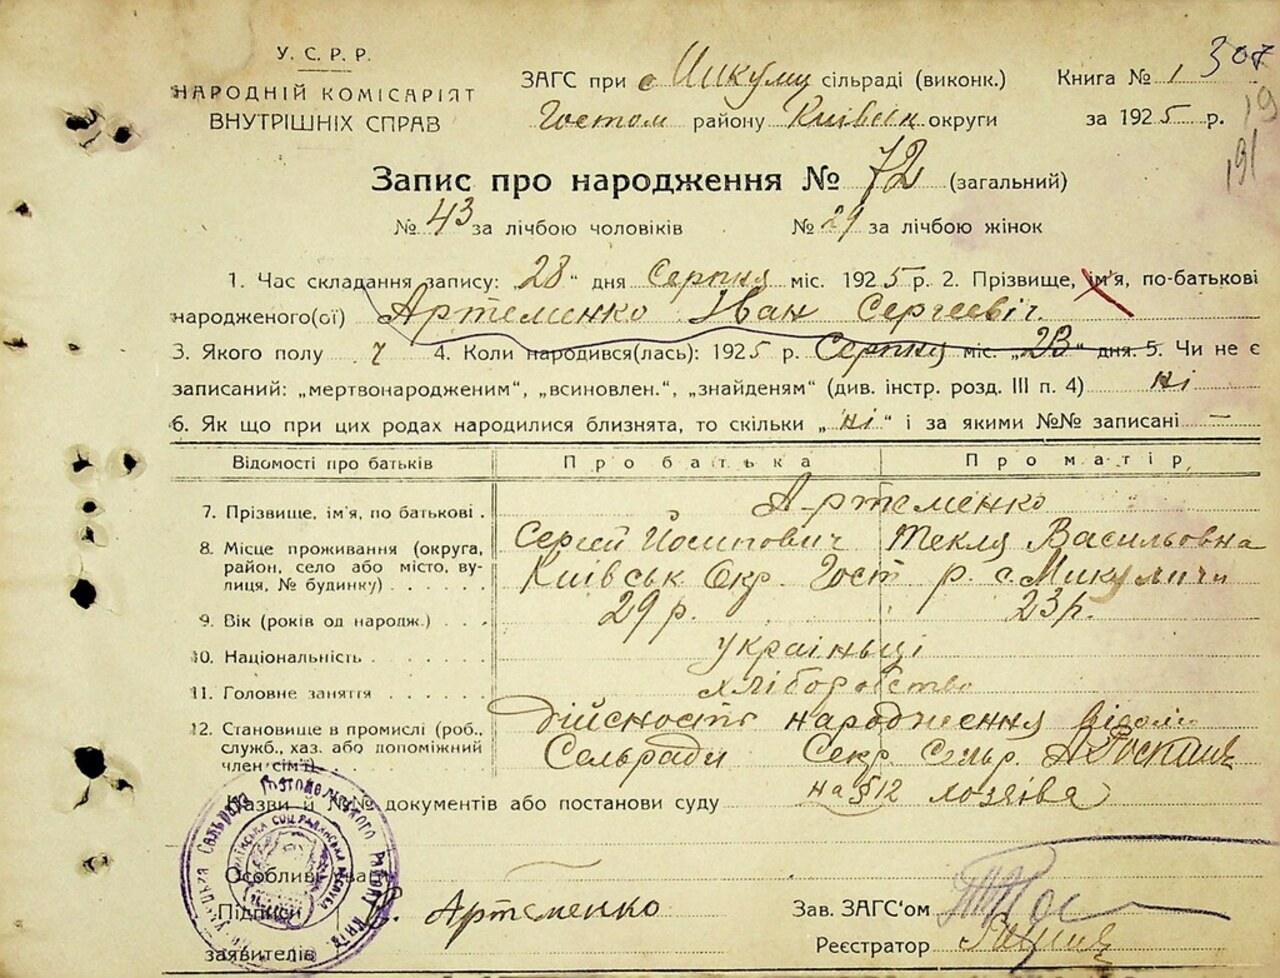 У. С. Р. Р.
НАРОДНІЙ КОМІСАРІЯТ
ВНУТРІШНІХ СПРАВ
ЗАГС при с Микули сільраді (виконк.)
Гостом району Київськ округи
Книга № 1 307
за 1925 р. 19
191
Запис про народження № 72 (загальний)
№ 43 за лічбою чоловіків № 29 за лічбою жінок
1. Час складання запису: „28“ дня Серпня міс. 1925 р. 2. Прізвище, ім'я, по-батькові
народженого(ої) Артеменко Іван Сергеевіч.
3. Якого полу ч 4. Коли народився(лась): 1925 р. Серпня міс. „23“ дня. 5. Чи не є
записаний: „мертвонародженим“, „всиновлен.“, „знайденям“ (див. інстр. розд. III п. 4) ні
6. Як що при цих родах народилися близнята, то скільки „ні“ і за якими №№ записані —
Відомості про батьків Про батька Про матір
7. Прізвище, ім'я, по батькові . Артеменко "
Сергей Йосипович Текля Васильовна
8. Місце проживання (округа,
район, село або місто, ву-
лиця, № будинку) . . . . . . Київськ Окр. Гост р. с. Микуличи
9. Вік (років од народж.) . . . 29 р. 23 р.
10. Національність . . . . . . . україньці
11. Головне заняття . . . . . . хлібороїство
12. Становище в промислі (роб.,
служб., хаз. або допоміжний
член сім'ї)
Дійсность народження
Сельради Секр. Сельр.
Назви й №№ документів або постанови суду на §12
Особливі уваги
Підписи Артеменко
заявителів
Зав. ЗАГС'ом
Реєстратор